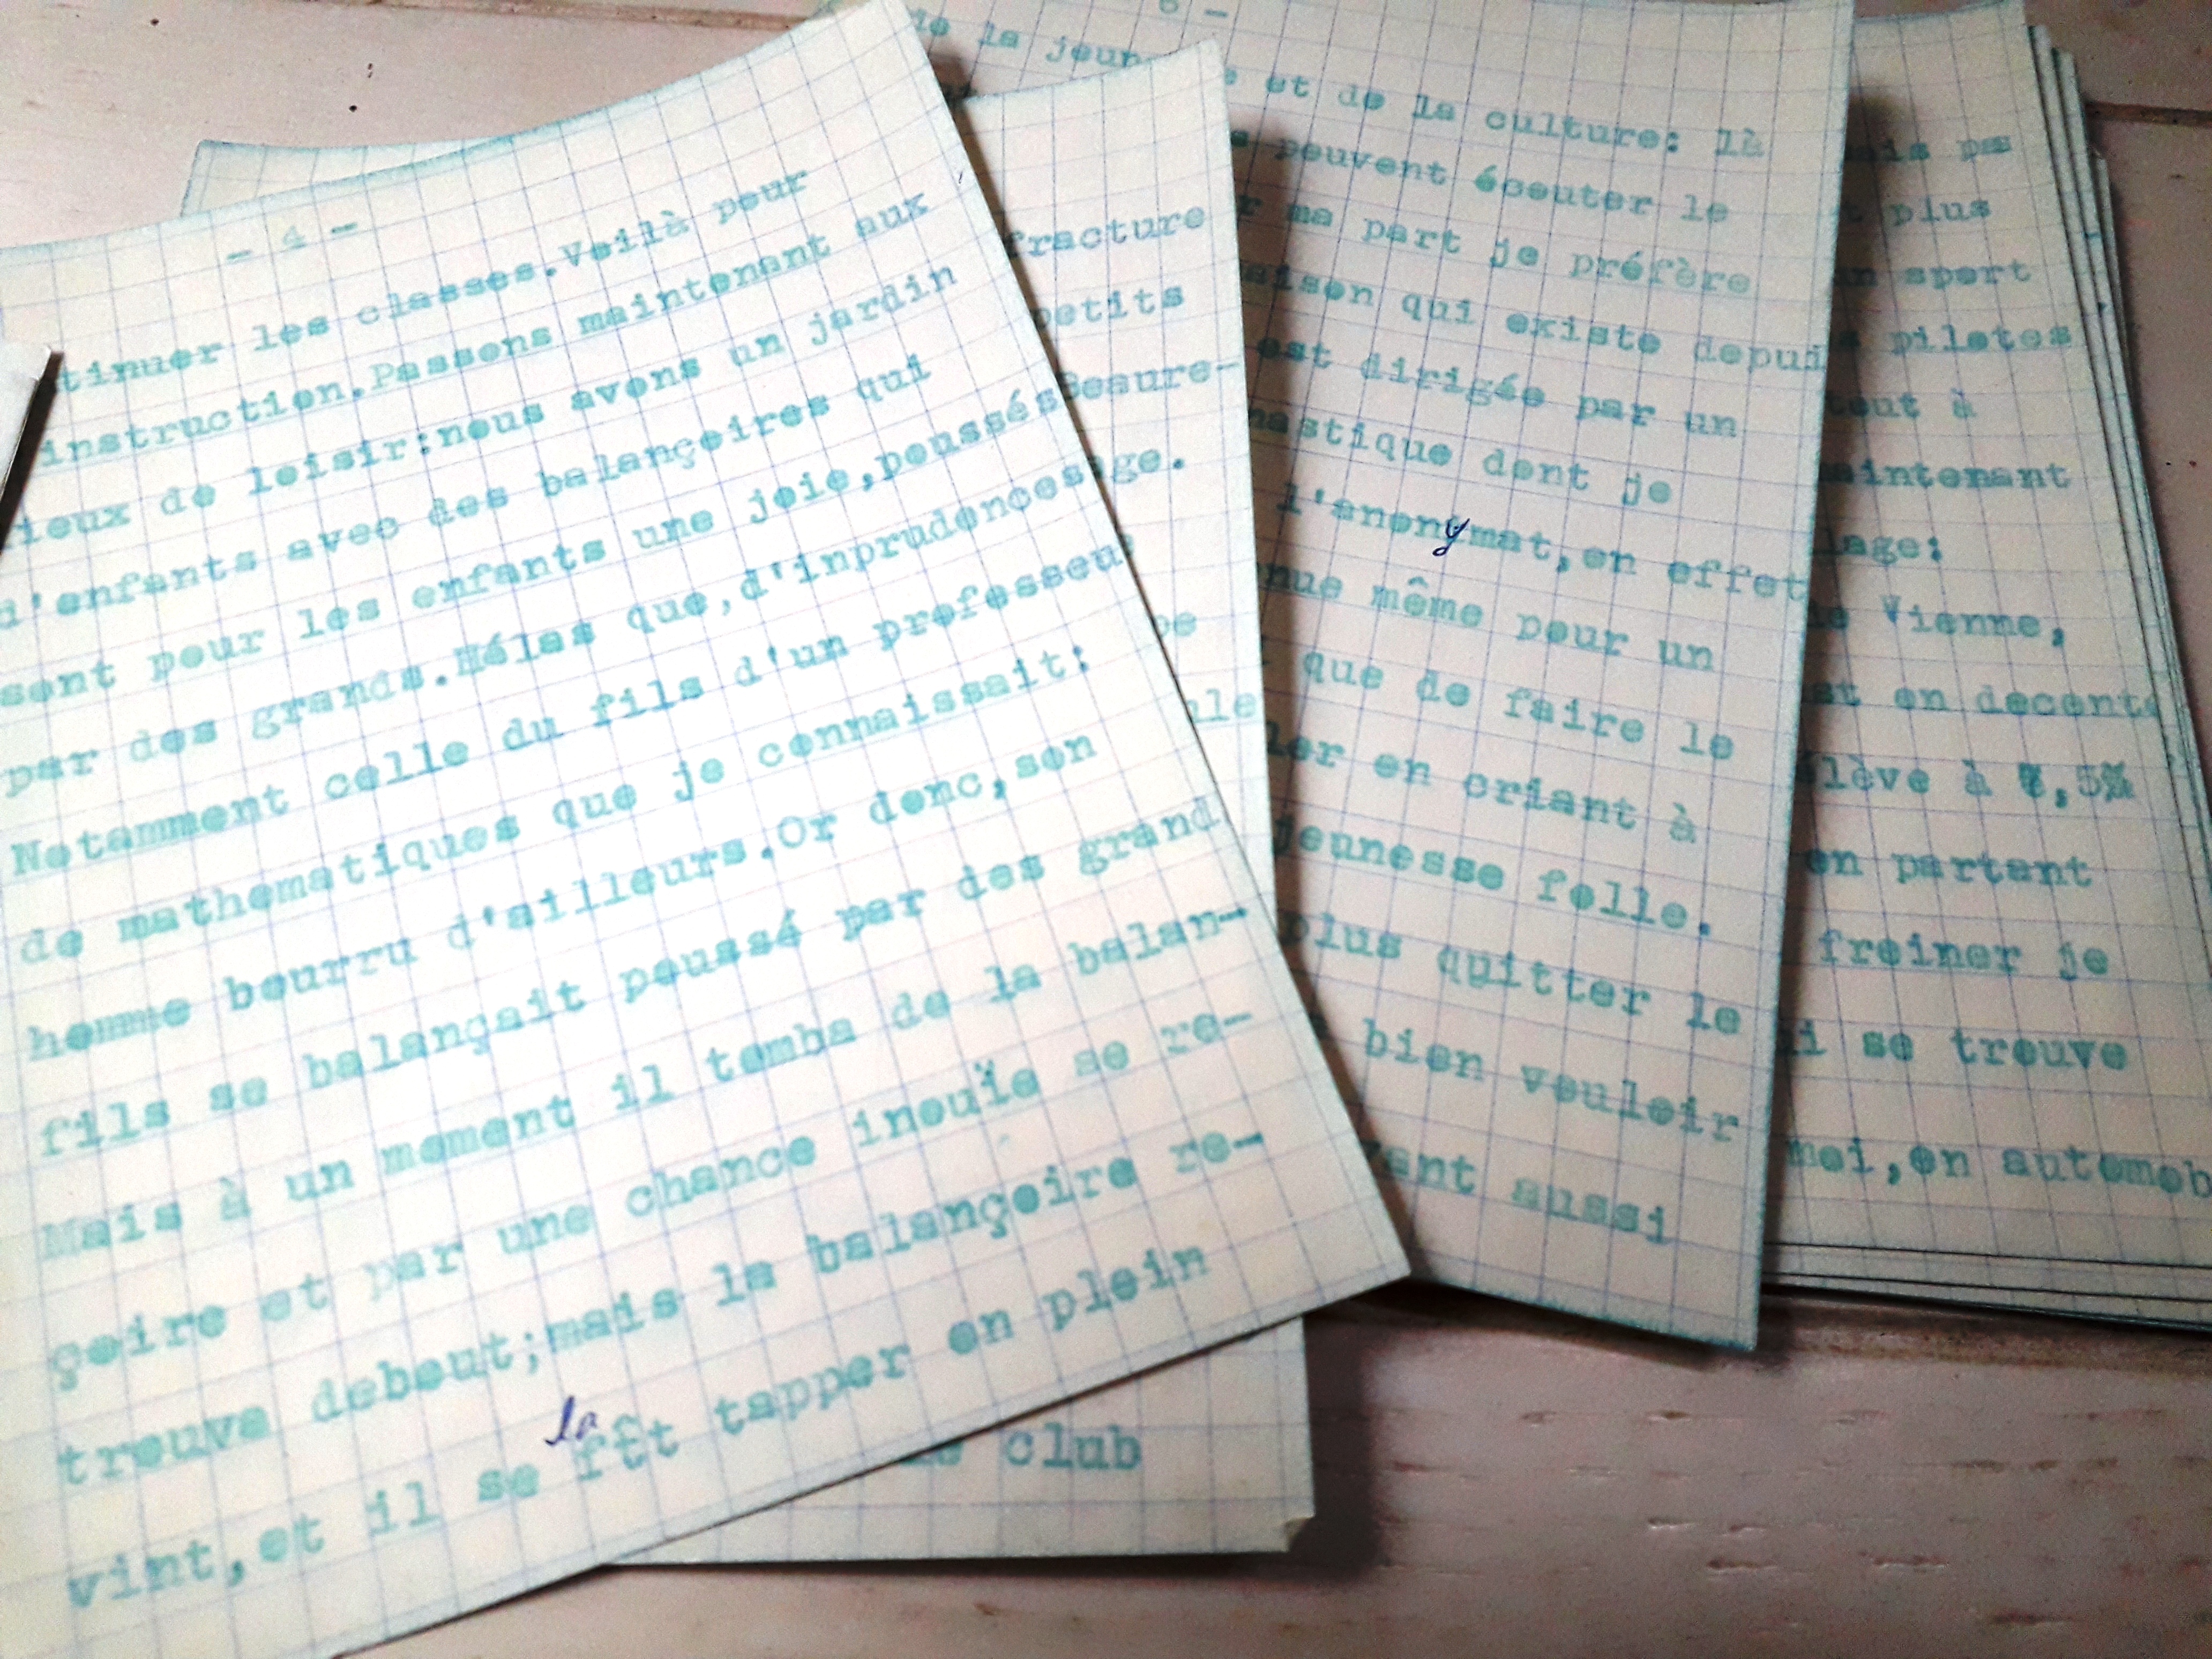 - 4 -
tinuer les classes.Voilà pour
instruction.Passons maintenant aux
ieux de loisir:nous avons un jardin
d'enfants avec des balançoires qui
sont pour les enfants une joie,poussés
par des grands.Hélas que,d'inprudences
Notamment celle du fils d'un professeu
de mathematiques que je connaissait:
homme bourru d'ailleurs.Or donc,son
fils se balançait poussé par des grand
Mais à un moment il tomba de la balan-
çoire et par une chance inouïe se re-
trouva debout;mais la balançoire re-
la
vint,et il se fît tapper en plein
fracture
petits
esure-
ge.
le
club
6 -
de la jeun e et de la culture: là
s peuvent écouter le
r ma part je préfère
aison qui existe depui
est dirigée par un
nastique dont je
l'anonymat,en effet
nue même pour un
que de faire le
ler en criant à
jeunesse folle.
plus quitter le
bien vouloir
vant aussi
ais pas
t plus
n sport
s pilotes
tout à
maintenant
lage:
de Vienne,
st en decente
lève à ,5%
en partant
freiner je
i se trouve
moi,en automob